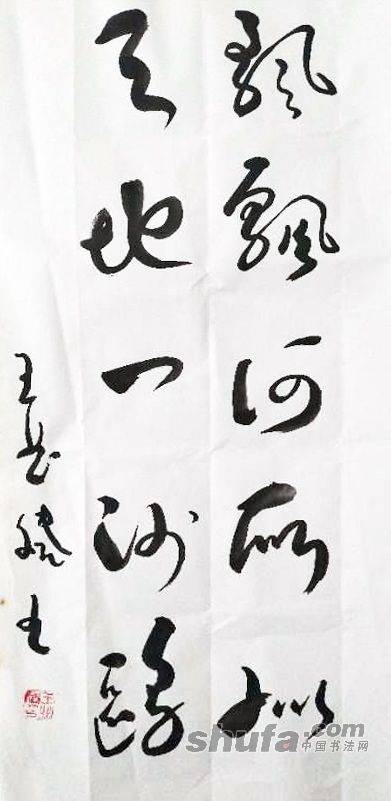 飄飄何所似
天地一沙鷗
王
shufa.com
中国书法网